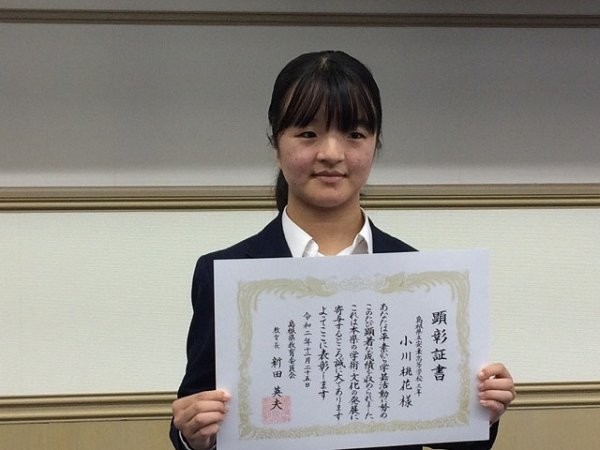 顕彰証書
島根県立安来高等学校三年
小川桃花様
あなたは平素から学芸活動に努め
このたび顕著な成績を収められました
これは本県の学術・文化の発展に
寄与するところ誠に大であります
よってここに表彰します
令和二年十二月二十五日
島根県教育委員会
教育長 新田英夫